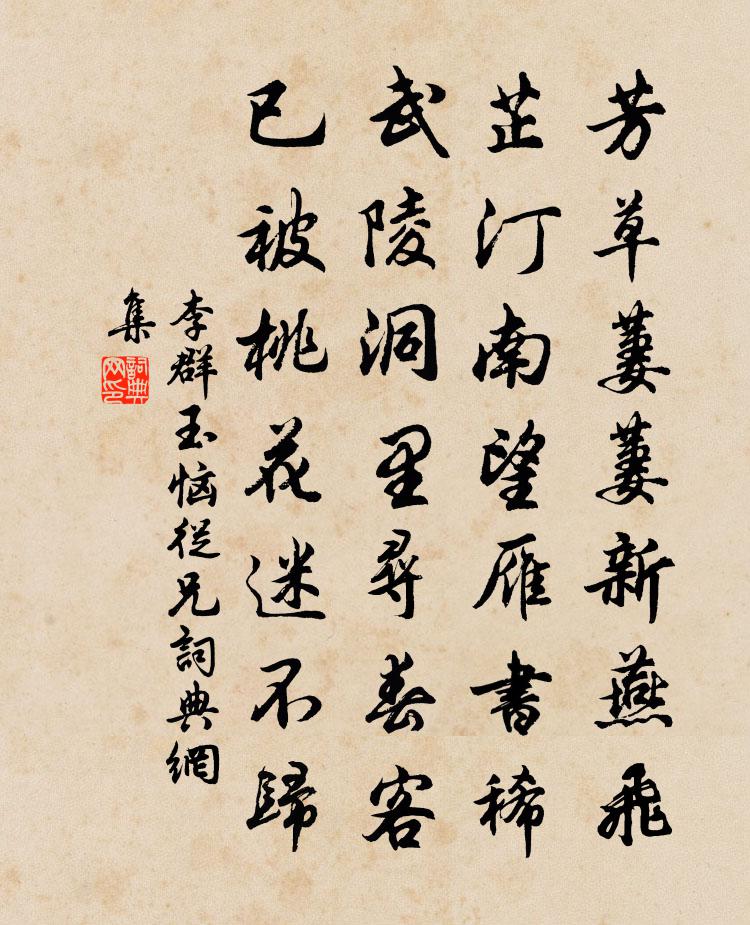 芳草萋萋新燕飛
芷汀南望雁書稀
武陵洞里尋春客
已被桃花迷不歸
李群玉恼從兄詞典網
集
詞典
网印